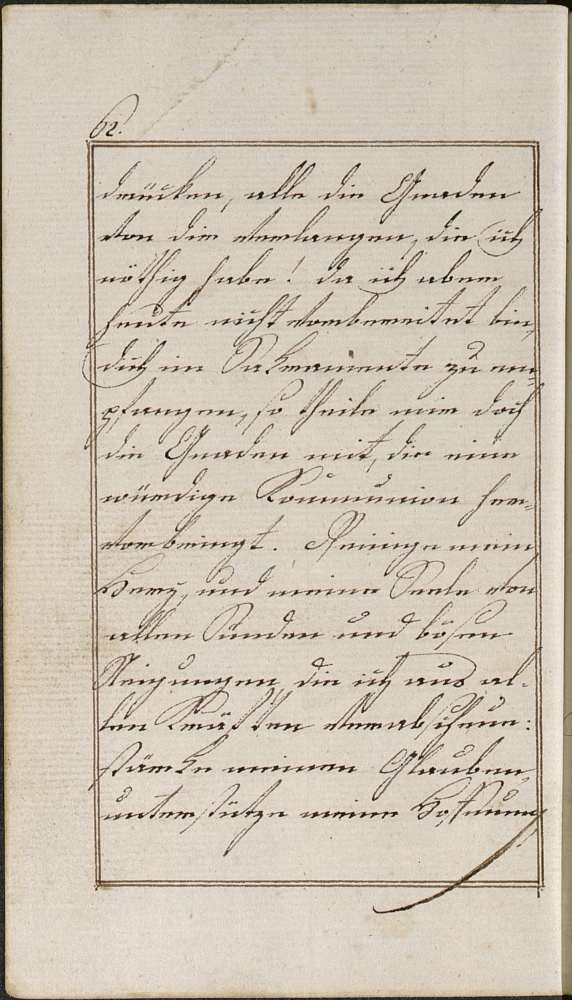 62.
drücken, alle die Gnaden
von dir verlangen, die ich
nöthig habe! da ich aber
heute nicht vorbereitet bin,
dich im Sakramente zu em-
pfangen, so theile mir doch
die Gnaden mit, die eine
würdige Kommunion her-
vorbringt. Reinige mein
Herz, und meine Seele von
allen Sünden und bösen
Neigungen, die ich aus al-
len Kräften verabscheue:
stärke meinen Glauben,
unterstütze meine Hofnung